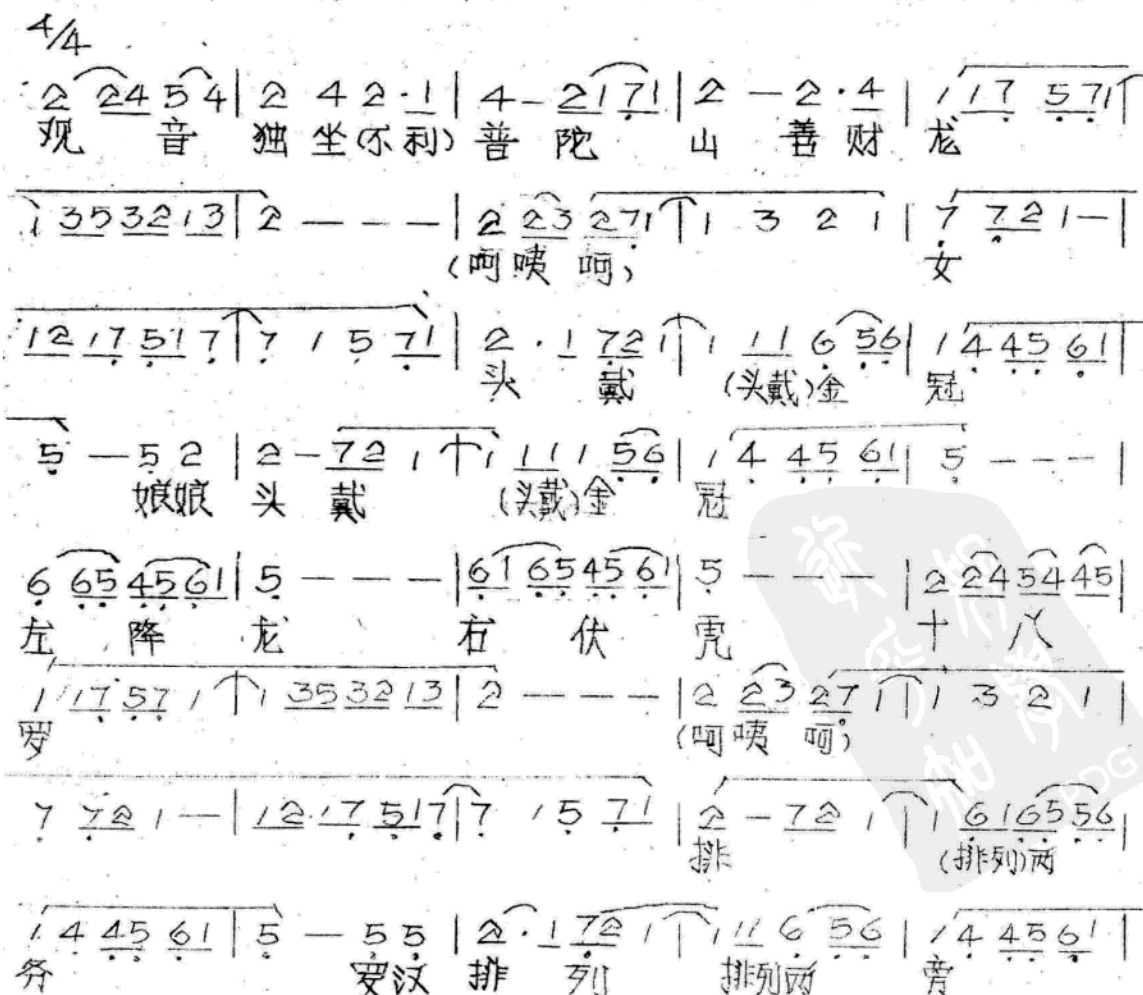 4/4
2 24 5 4 | 2 4 2 · 1 | 4 - 2171 | 2 - 2 · 4 | 1 17 571
观 音 独 坐(不利) 普 陀 山 善 财 龙
1 35 32 13 | 2 - - - | 2 23 271 | 1 3 2 1 | 7 72 1 -
(呵咦 呵) 女
12 17 51 7 | 7 1 5 71 | 2 · 1 72 1 | 1 11 6 56 | 1 4 45 61
头 戴 (头戴)金 冠
5 - 5 2 | 2 - 72 1 | 1 11 1 56 | 1 4 45 61 | 5 - - - |
娘娘 头 戴 (头戴)金 冠
6 65 4561 | 5 - - - | 61 65 45 61 | 5 - - - | 2 24 54 45 |
左 降 龙 右 伏 虎 十 八
1 17 57 1 | 1 35 32 13 | 2 - - - - | 2 23 27 1 | 1 3 2 1 |
罗 (呵咦 呵)
7 72 1 - | 12 17 517 | 7 1 5 71 | 2 - 72 1 | 1 61 65 56 |
排 (排列)两
1 4 45 61 | 5 - 5 5 | 2 · 1 72 1 | 1 11 6 56 | 1 4 45 61 |
罗汉 排 列 排列两 旁
PDG